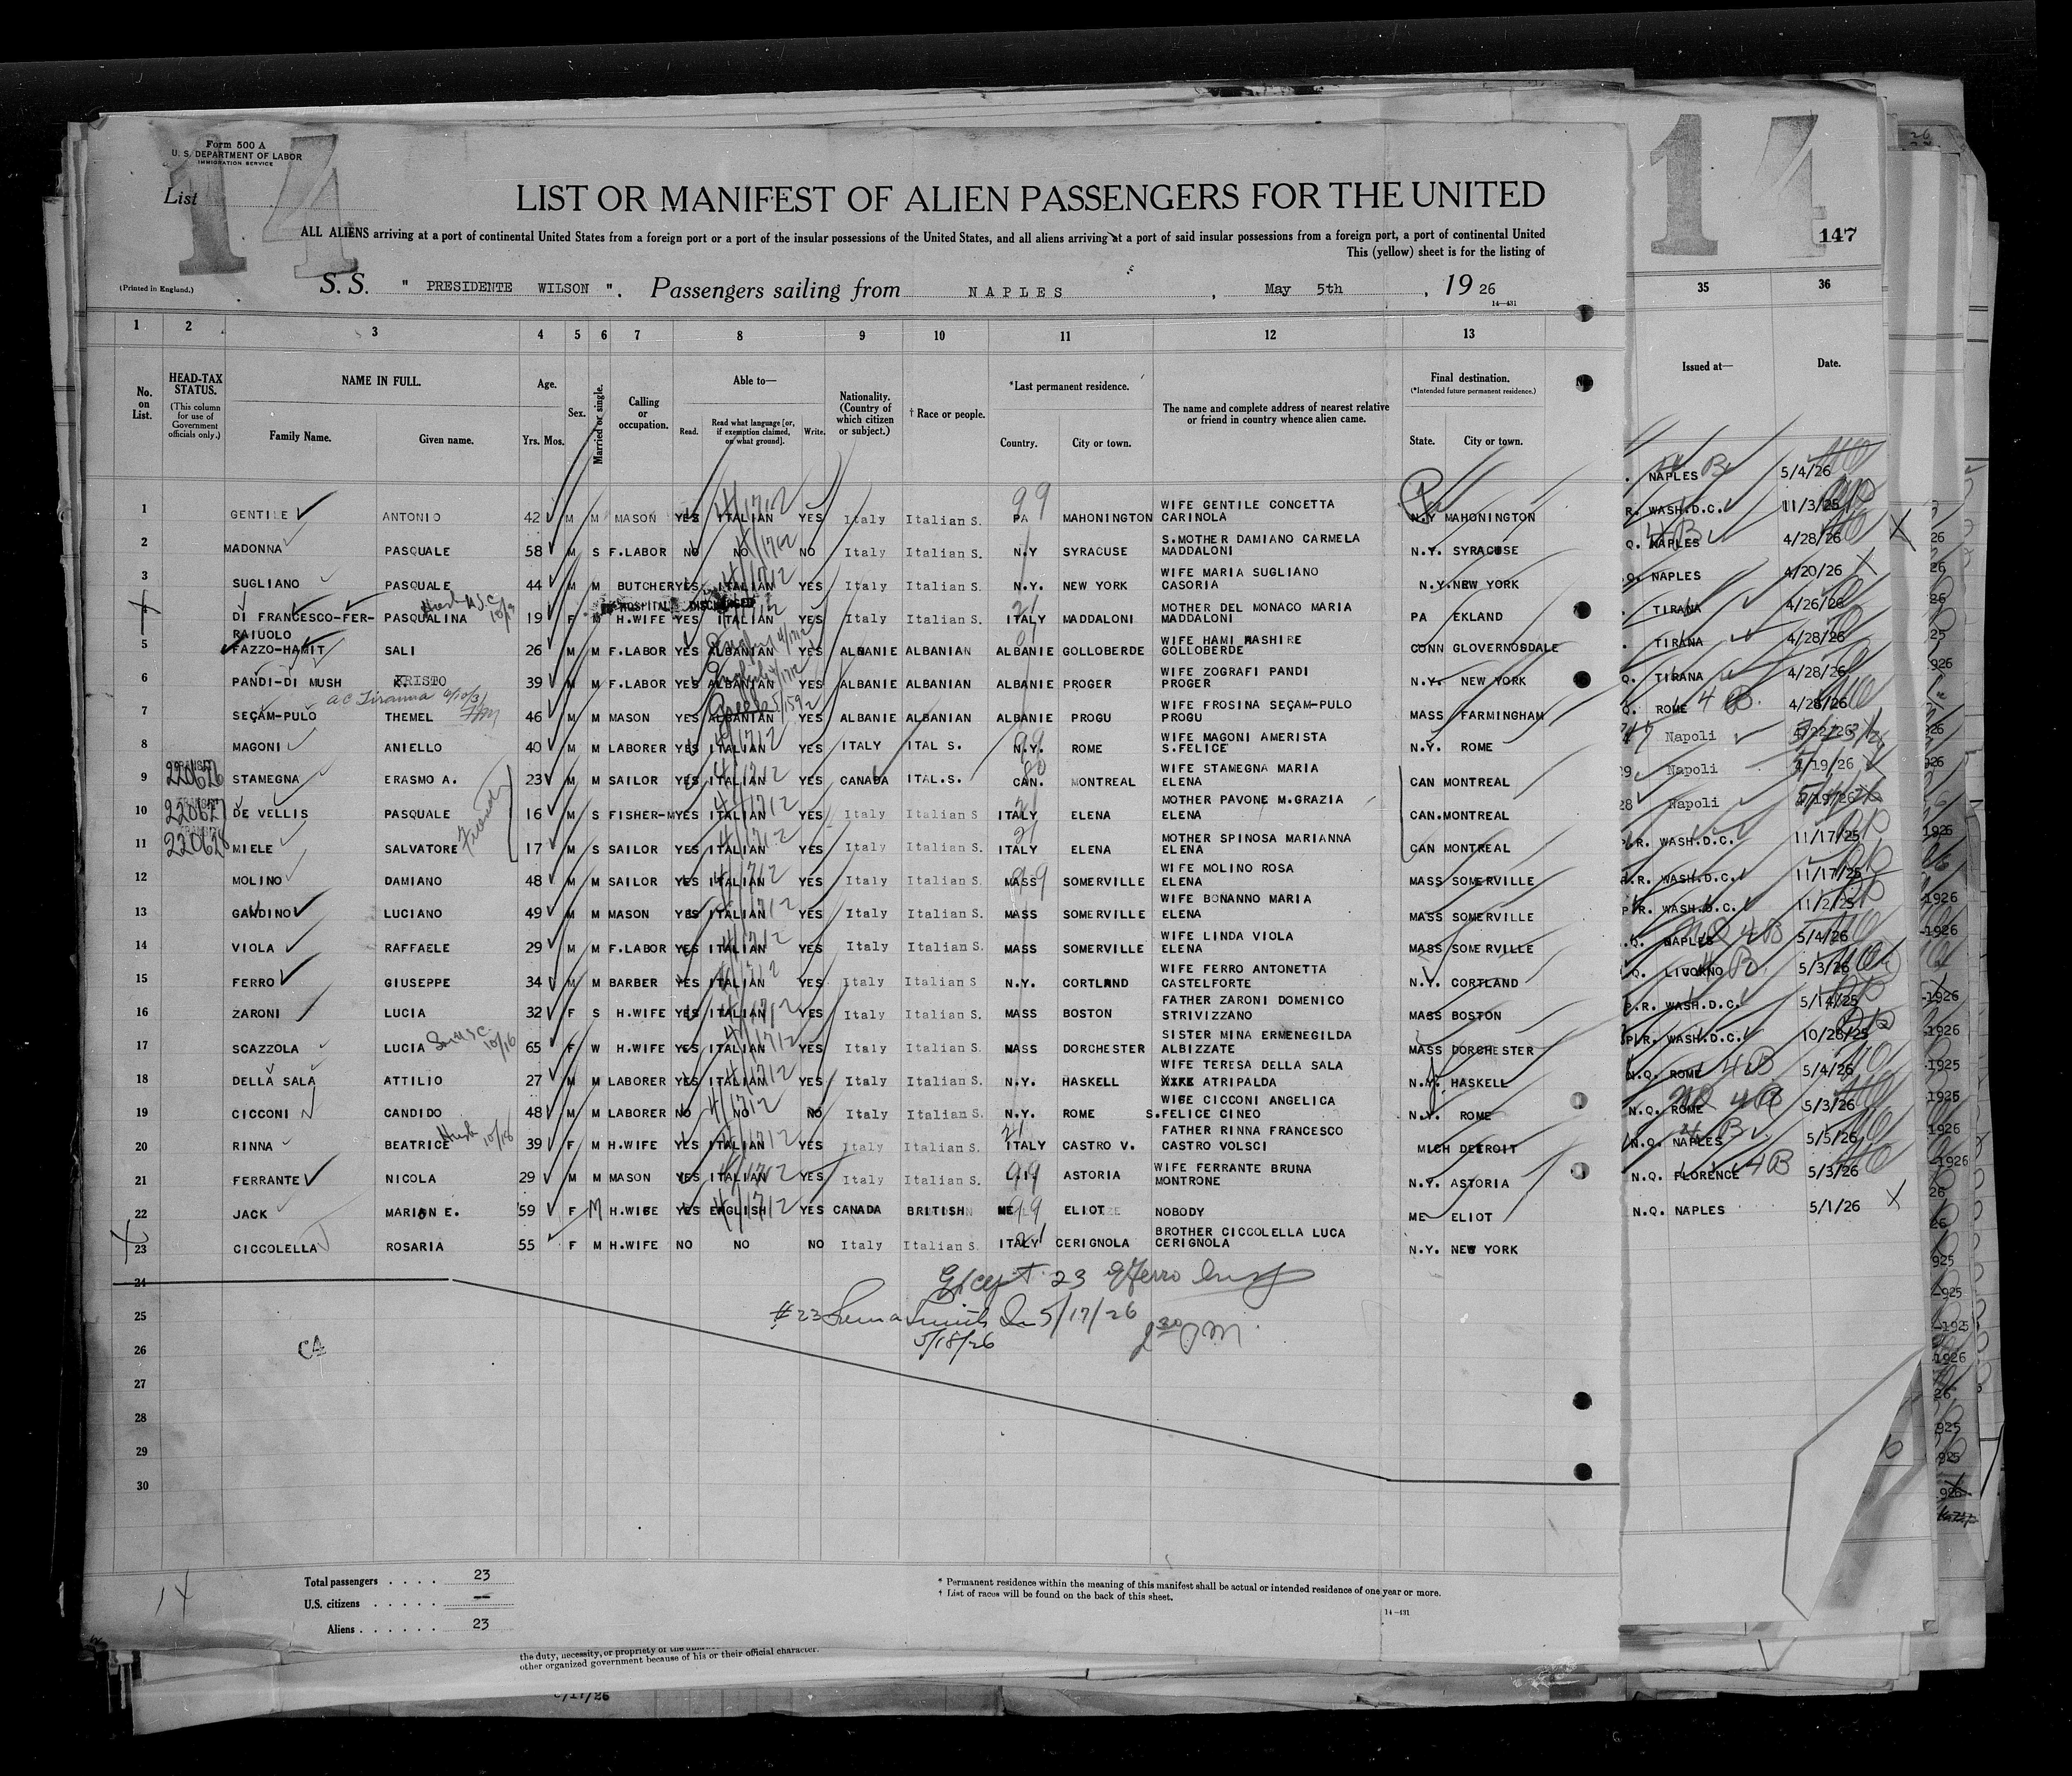 14
14
147
Form 500 A
U. S. DEPARTMENT OF LABOR
IMMIGRATION SERVICE
List
LIST OR MANIFEST OF ALIEN PASSENGERS FOR THE UNITED
ALL ALIENS arriving at a port of continental United States from a foreign port or a port of the insular possessions of the United States, and all aliens arriving at a port of said insular possessions from a foreign port, a port of continental United
This (yellow) sheet is for the listing of
(Printed in England.)
S. S. " PRESIDENTE WILSON ". Passengers sailing from NAPLES, May 5th, 19 26
14—431
1 2 3 4 5 6 7 8 9 10 11 12 13 35 36
No. on List.
HEAD-TAX STATUS.
(This column for use of Government officials only.)
NAME IN FULL.
Family Name. Given name.
Age.
Yrs. Mos.
Sex.
Married or single.
Calling or occupation.
Able to—
Read. Read what language [or, if exemption claimed, on what ground]. Write.
Nationality. (Country of which citizen or subject.)
† Race or people.
*Last permanent residence.
Country. City or town.
The name and complete address of nearest relative or friend in country whence alien came.
Final destination.
(*Intended future permanent residence.)
State. City or town.
Issued at— Date.
1 GENTILE ANTONIO 42 M M MASON YES ITALIAN YES Italy Italian S. PA MAHONINGTON WIFE GENTILE CONCETTA CARINOLA N.Y MAHONINGTON
2 MADONNA PASQUALE 58 M S F.LABOR NO NO NO Italy Italian S. N.Y SYRACUSE S.MOTHER DAMIANO CARMELA MADDALONI N.Y. SYRACUSE
3 SUGLIANO PASQUALE 44 M M BUTCHER YES ITALIAN YES Italy Italian S. N.Y. NEW YORK WIFE MARIA SUGLIANO CASORIA N.Y. NEW YORK
HOSPITAL DISCHARGED
4 DI FRANCESCO-FER-RAIUOLO PASQUALINA 19 F M H.WIFE YES ITALIAN YES Italy Italian S. ITALY MADDALONI MOTHER DEL MONACO MARIA MADDALONI PA EKLAND
5 FAZZO-HAMIT SALI 26 M M F.LABOR YES ALBANIAN YES ALBANIE ALBANIAN ALBANIE GOLLOBERDE WIFE HAMI HASHIRE GOLLOBERDE CONN GLOVERNOSDALE
6 PANDI-DI MUSH KRISTO 39 M M F.LABOR YES ALBANIAN YES ALBANIE ALBANIAN ALBANIE PROGER WIFE ZOGRAFI PANDI PROGER N.Y. NEW YORK
7 SEÇAM-PULO THEMEL 46 M M MASON YES ALBANIAN YES ALBANIE ALBANIAN ALBANIE PROGU WIFE FROSINA SEÇAM-PULO PROGU MASS FARMINGHAM
8 MAGONI ANIELLO 40 M M LABORER YES ITALIAN YES ITALY ITAL S. N.Y. ROME WIFE MAGONI AMERISTA S.FELICE N.Y. ROME
9 220626 STAMEGNA ERASMO A. 23 M M SAILOR YES ITALIAN YES CANADA ITAL.S. CAN. MONTREAL WIFE STAMEGNA MARIA ELENA CAN MONTREAL
10 220627 DE VELLIS PASQUALE 16 M S FISHER-M YES ITALIAN YES Italy Italian S ITALY ELENA MOTHER PAVONE M.GRAZIA ELENA CAN.MONTREAL
11 220628 MIELE SALVATORE 17 M S SAILOR YES ITALIAN YES Italy Italian S. ITALY ELENA MOTHER SPINOSA MARIANNA ELENA CAN MONTREAL
12 MOLINO DAMIANO 48 M M SAILOR YES ITALIAN YES Italy Italian S. MASS SOMERVILLE WIFE MOLINO ROSA ELENA MASS SOMERVILLE
13 GANDINO LUCIANO 49 M M MASON YES ITALIAN YES Italy Italian S. MASS SOMERVILLE WIFE BONANNO MARIA ELENA MASS SOMERVILLE
14 VIOLA RAFFAELE 29 M M F.LABOR YES ITALIAN YES Italy Italian S. MASS SOMERVILLE WIFE LINDA VIOLA ELENA MASS SOMERVILLE
15 FERRO GIUSEPPE 34 M M BARBER YES ITALIAN YES Italy Italian S N.Y. CORTLAND WIFE FERRO ANTONETTA CASTELFORTE N.Y. CORTLAND
16 ZARONI LUCIA 32 F S H.WIFE YES ITALIAN YES Italy Italian S. MASS BOSTON FATHER ZARONI DOMENICO STRIVIZZANO MASS BOSTON
17 SCAZZOLA LUCIA 65 F W H.WIFE YES ITALIAN YES Italy Italian S. MASS DORCHESTER SISTER MINA ERMENEGILDA ALBIZZATE MASS DORCHESTER
18 DELLA SALA ATTILIO 27 M M LABORER YES ITALIAN YES Italy Italian S. N.Y. HASKELL WIFE TERESA DELLA SALA ATRIPALDA N.Y. HASKELL
19 CICCONI CANDIDO 48 M M LABORER NO NO NO Italy Italian S. N.Y. ROME WIFE CICCONI ANGELICA S.FELICE CINEO N.Y. ROME
20 RINNA BEATRICE 39 F M H.WIFE YES ITALIAN YES Italy Italian S. ITALY CASTRO V. FATHER RINNA FRANCESCO CASTRO VOLSCI MICH DETROIT
21 FERRANTE NICOLA 29 M M MASON YES ITALIAN YES Italy Italian S. L.I. ASTORIA WIFE FERRANTE BRUNA MONTRONE N.Y. ASTORIA
22 JACK MARION E. 59 F M H.WIFE YES ENGLISH YES CANADA BRITISH ME ELIOT NOBODY ME ELIOT
23 CICCOLELLA ROSARIA 55 F M H.WIFE NO NO NO Italy Italian S. ITALY CERIGNOLA BROTHER CICCOLELLA LUCA CERIGNOLA N.Y. NEW YORK
24
25
26
27
28
29
30
Except 23
#23 5/17/26
5/18/26 2 30 PM
CA
NAPLES 5/4/26
R. WASH.D.C. 11/3/25
Q. NAPLES 4/28/26
Q. NAPLES 4/20/26
TIRANA 4/26/26
TIRANA 4/28/26
Q. TIRANA 4/28/26
Q. ROME 4/28/26
Napoli 4/22/26
Napoli 4/19/26
Napoli 4/19/26
P.R. WASH.D.C. 11/17/25
P.R. WASH.D.C. 11/17/25
P.R. WASH.D.C. 11/2/25
.Q. NAPLES 5/4/26
.Q. LIVORNO 5/3/26
P.R. WASH.D.C. 5/14/25
P.R. WASH.D.C. 10/26/25
N.Q. ROME 5/4/26
N.Q. ROME 5/3/26
N.Q. NAPLES 5/5/26
N.Q. FLORENCE 5/3/26
N.Q. NAPLES 5/1/26
Total passengers . . . . 23
U.S. citizens . . . . . . —
Aliens . . . . . . 23
* Permanent residence within the meaning of this manifest shall be actual or intended residence of one year or more.
† List of races will be found on the back of this sheet.
14—431
the duty, necessity, or propriety of the
other organized government because of his or their official character.